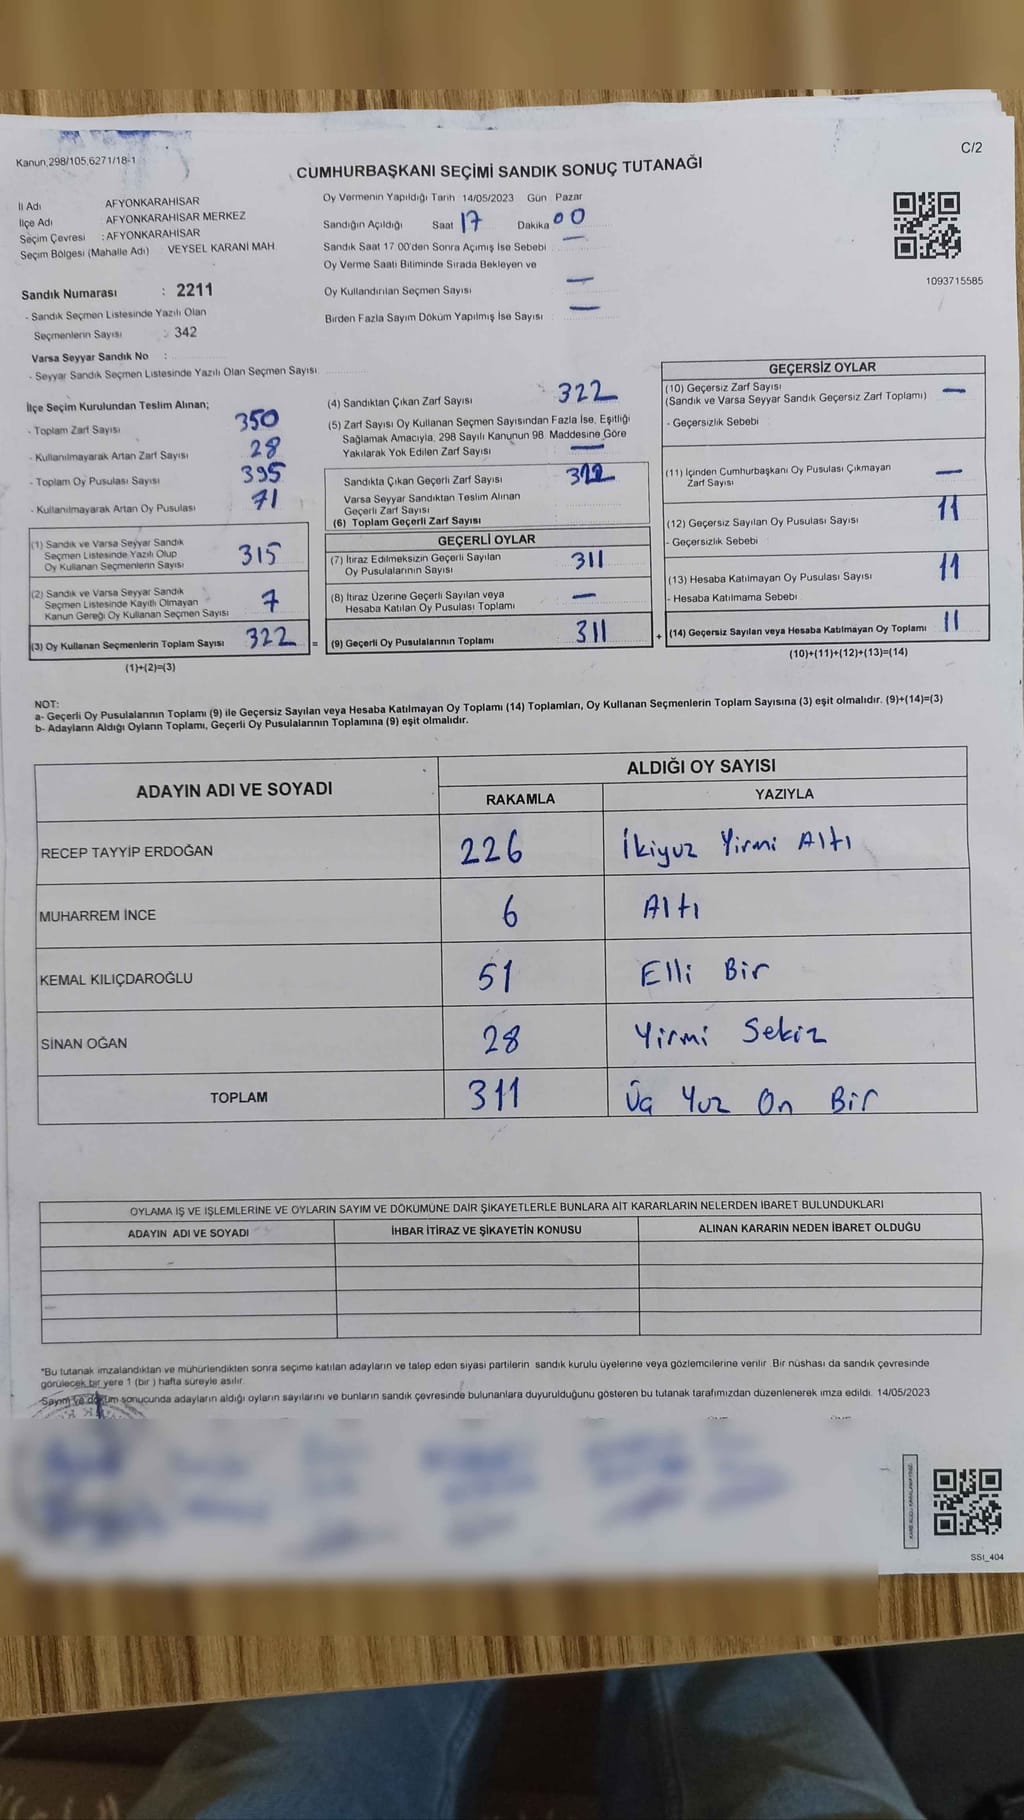 Kanun,298/105,6271/18-1
C/2
CUMHURBAŞKANI SEÇİMİ SANDIK SONUÇ TUTANAĞI
İl Adı AFYONKARAHİSAR
İlçe Adı : AFYONKARAHİSAR MERKEZ
Seçim Çevresi : AFYONKARAHİSAR
Seçim Bölgesi (Mahalle Adı) : VEYSEL KARANİ MAH.
Oy Vermenin Yapıldığı Tarih 14/05/2023 Gün Pazar
Sandığın Açıldığı Saat 17 Dakika 00
Sandık Saat 17 00'den Sonra Açımış İse Sebebi —
Oy Verme Saati Bitiminde Sırada Bekleyen ve
Oy Kullandırılan Seçmen Sayısı —
Birden Fazla Sayım Döküm Yapılmış İse Sayısı —
1093715585
Sandık Numarası : 2211
- Sandık Seçmen Listesinde Yazılı Olan
Seçmenlerin Sayısı : 342
Varsa Seyyar Sandık No :
- Seyyar Sandık Seçmen Listesinde Yazılı Olan Seçmen Sayısı
İlçe Seçim Kurulundan Teslim Alınan;
- Toplam Zarf Sayısı 350
- Kullanılmayarak Artan Zarf Sayısı 28
- Toplam Oy Pusulası Sayısı 395
- Kullanılmayarak Artan Oy Pusulası 71
(1) Sandık ve Varsa Seyyar Sandık
Seçmen Listesinde Yazılı Olup
Oy Kullanan Seçmenlerin Sayısı 315
(2) Sandık ve Varsa Seyyar Sandık
Seçmen Listesinde Kayıtlı Olmayan
Kanun Gereği Oy Kullanan Seçmen Sayısı 7
(3) Oy Kullanan Seçmenlerin Toplam Sayısı 322 =
(1)+(2)=(3)
(4) Sandıktan Çıkan Zarf Sayısı 322
(5) Zarf Sayısı Oy Kullanan Seçmen Sayısından Fazla İse, Eşitliği
Sağlamak Amacıyla, 298 Sayılı Kanunun 98 Maddesine Göre
Yakılarak Yok Edilen Zarf Sayısı —
Sandıkta Çıkan Geçerli Zarf Sayısı 322
Varsa Seyyar Sandıktan Teslim Alınan
Geçerli Zarf Sayısı
(6) Toplam Geçerli Zarf Sayısı
GEÇERLİ OYLAR
(7) İtiraz Edilmeksizin Geçerli Sayılan
Oy Pusulalarının Sayısı 311
(8) İtiraz Üzerine Geçerli Sayılan veya
Hesaba Katılan Oy Pusulası Toplamı —
(9) Geçerli Oy Pusulalarının Toplamı 311 +
GEÇERSİZ OYLAR
(10) Geçersiz Zarf Sayısı
(Sandık ve Varsa Seyyar Sandık Geçersiz Zarf Toplamı) —
- Geçersizlik Sebebi
(11) İçinden Cumhurbaşkanı Oy Pusulası Çıkmayan
Zarf Sayısı —
(12) Geçersiz Sayılan Oy Pusulası Sayısı 11
- Geçersizlik Sebebi
(13) Hesaba Katılmayan Oy Pusulası Sayısı 11
- Hesaba Katılmama Sebebi
(14) Geçersiz Sayılan veya Hesaba Katılmayan Oy Toplamı 11
(10)+(11)+(12)+(13)=(14)
NOT:
a- Geçerli Oy Pusulalarının Toplamı (9) ile Geçersiz Sayılan veya Hesaba Katılmayan Oy Toplamı (14) Toplamları, Oy Kullanan Seçmenlerin Toplam Sayısına (3) eşit olmalıdır. (9)+(14)=(3)
b- Adayların Aldığı Oyların Toplamı, Geçerli Oy Pusulalarının Toplamına (9) eşit olmalıdır.
ADAYIN ADI VE SOYADI ALDIĞI OY SAYISI
RAKAMLA YAZIYLA
RECEP TAYYİP ERDOĞAN 226 İkiyuz Yirmi Altı
MUHARREM İNCE 6 Altı
KEMAL KILIÇDAROĞLU 51 Elli Bir
SİNAN OĞAN 28 Yirmi Sekiz
TOPLAM 311 Üç Yuz On Bir
OYLAMA İŞ VE İŞLEMLERİNE VE OYLARIN SAYIM VE DÖKÜMÜNE DAİR ŞİKAYETLERLE BUNLARA AİT KARARLARIN NELERDEN İBARET BULUNDUKLARI
ADAYIN ADI VE SOYADI İHBAR İTİRAZ VE ŞİKAYETİN KONUSU ALINAN KARARIN NEDEN İBARET OLDUĞU
*Bu tutanak imzalandıktan ve mühürlendikten sonra seçime katılan adayların ve talep eden siyasi partilerin sandık kurulu üyelerine veya gözlemcilerine verilir. Bir nüshası da sandık çevresinde
görülecek bir yere 1 (bir ) hafta süreyle asılır.
Sayım ve döküm sonucunda adayların aldığı oyların sayılarını ve bunların sandık çevresinde bulunanlara duyurulduğunu gösteren bu tutanak tarafımızdan düzenlenerek imza edildi. 14/05/2023
SSI_404